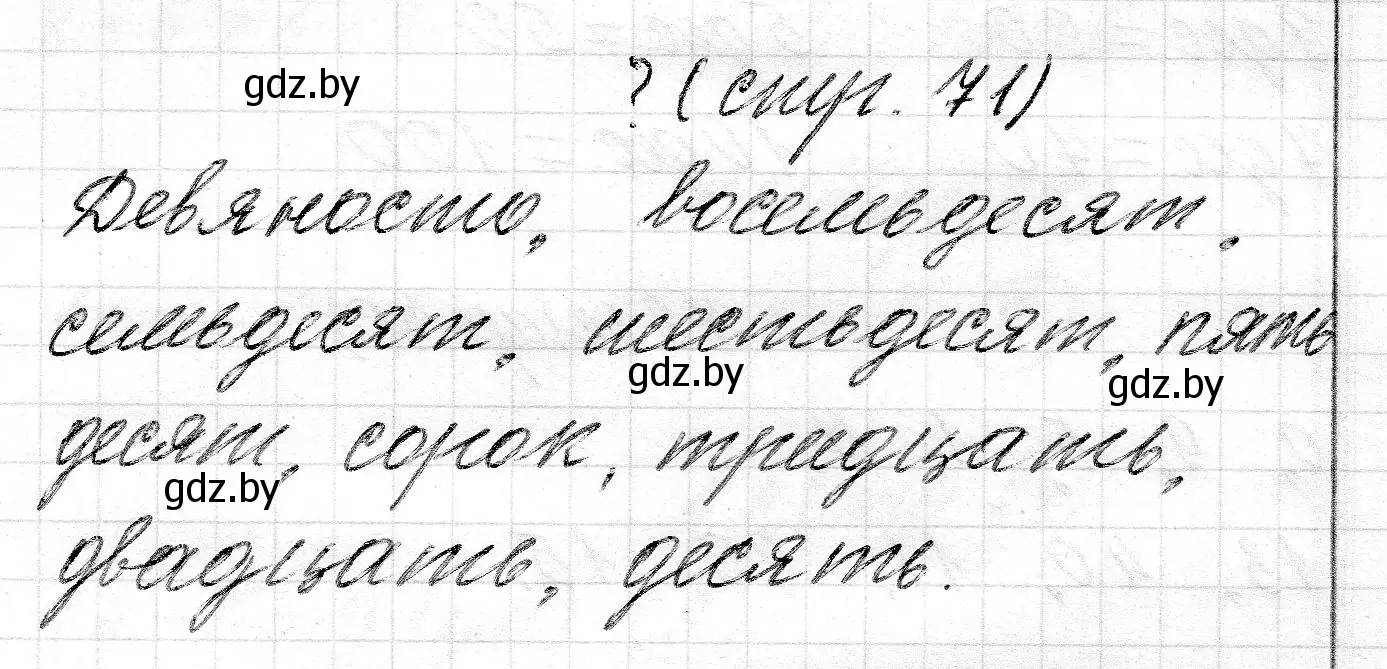 gdz.by ? (стр. 71)
Девяносто, восемьдесят,
семьдесят, шестьдесят, пять
gdz.by gdz.by
десят, сорок, тридцать,
gdz.by
двадцать, десять.